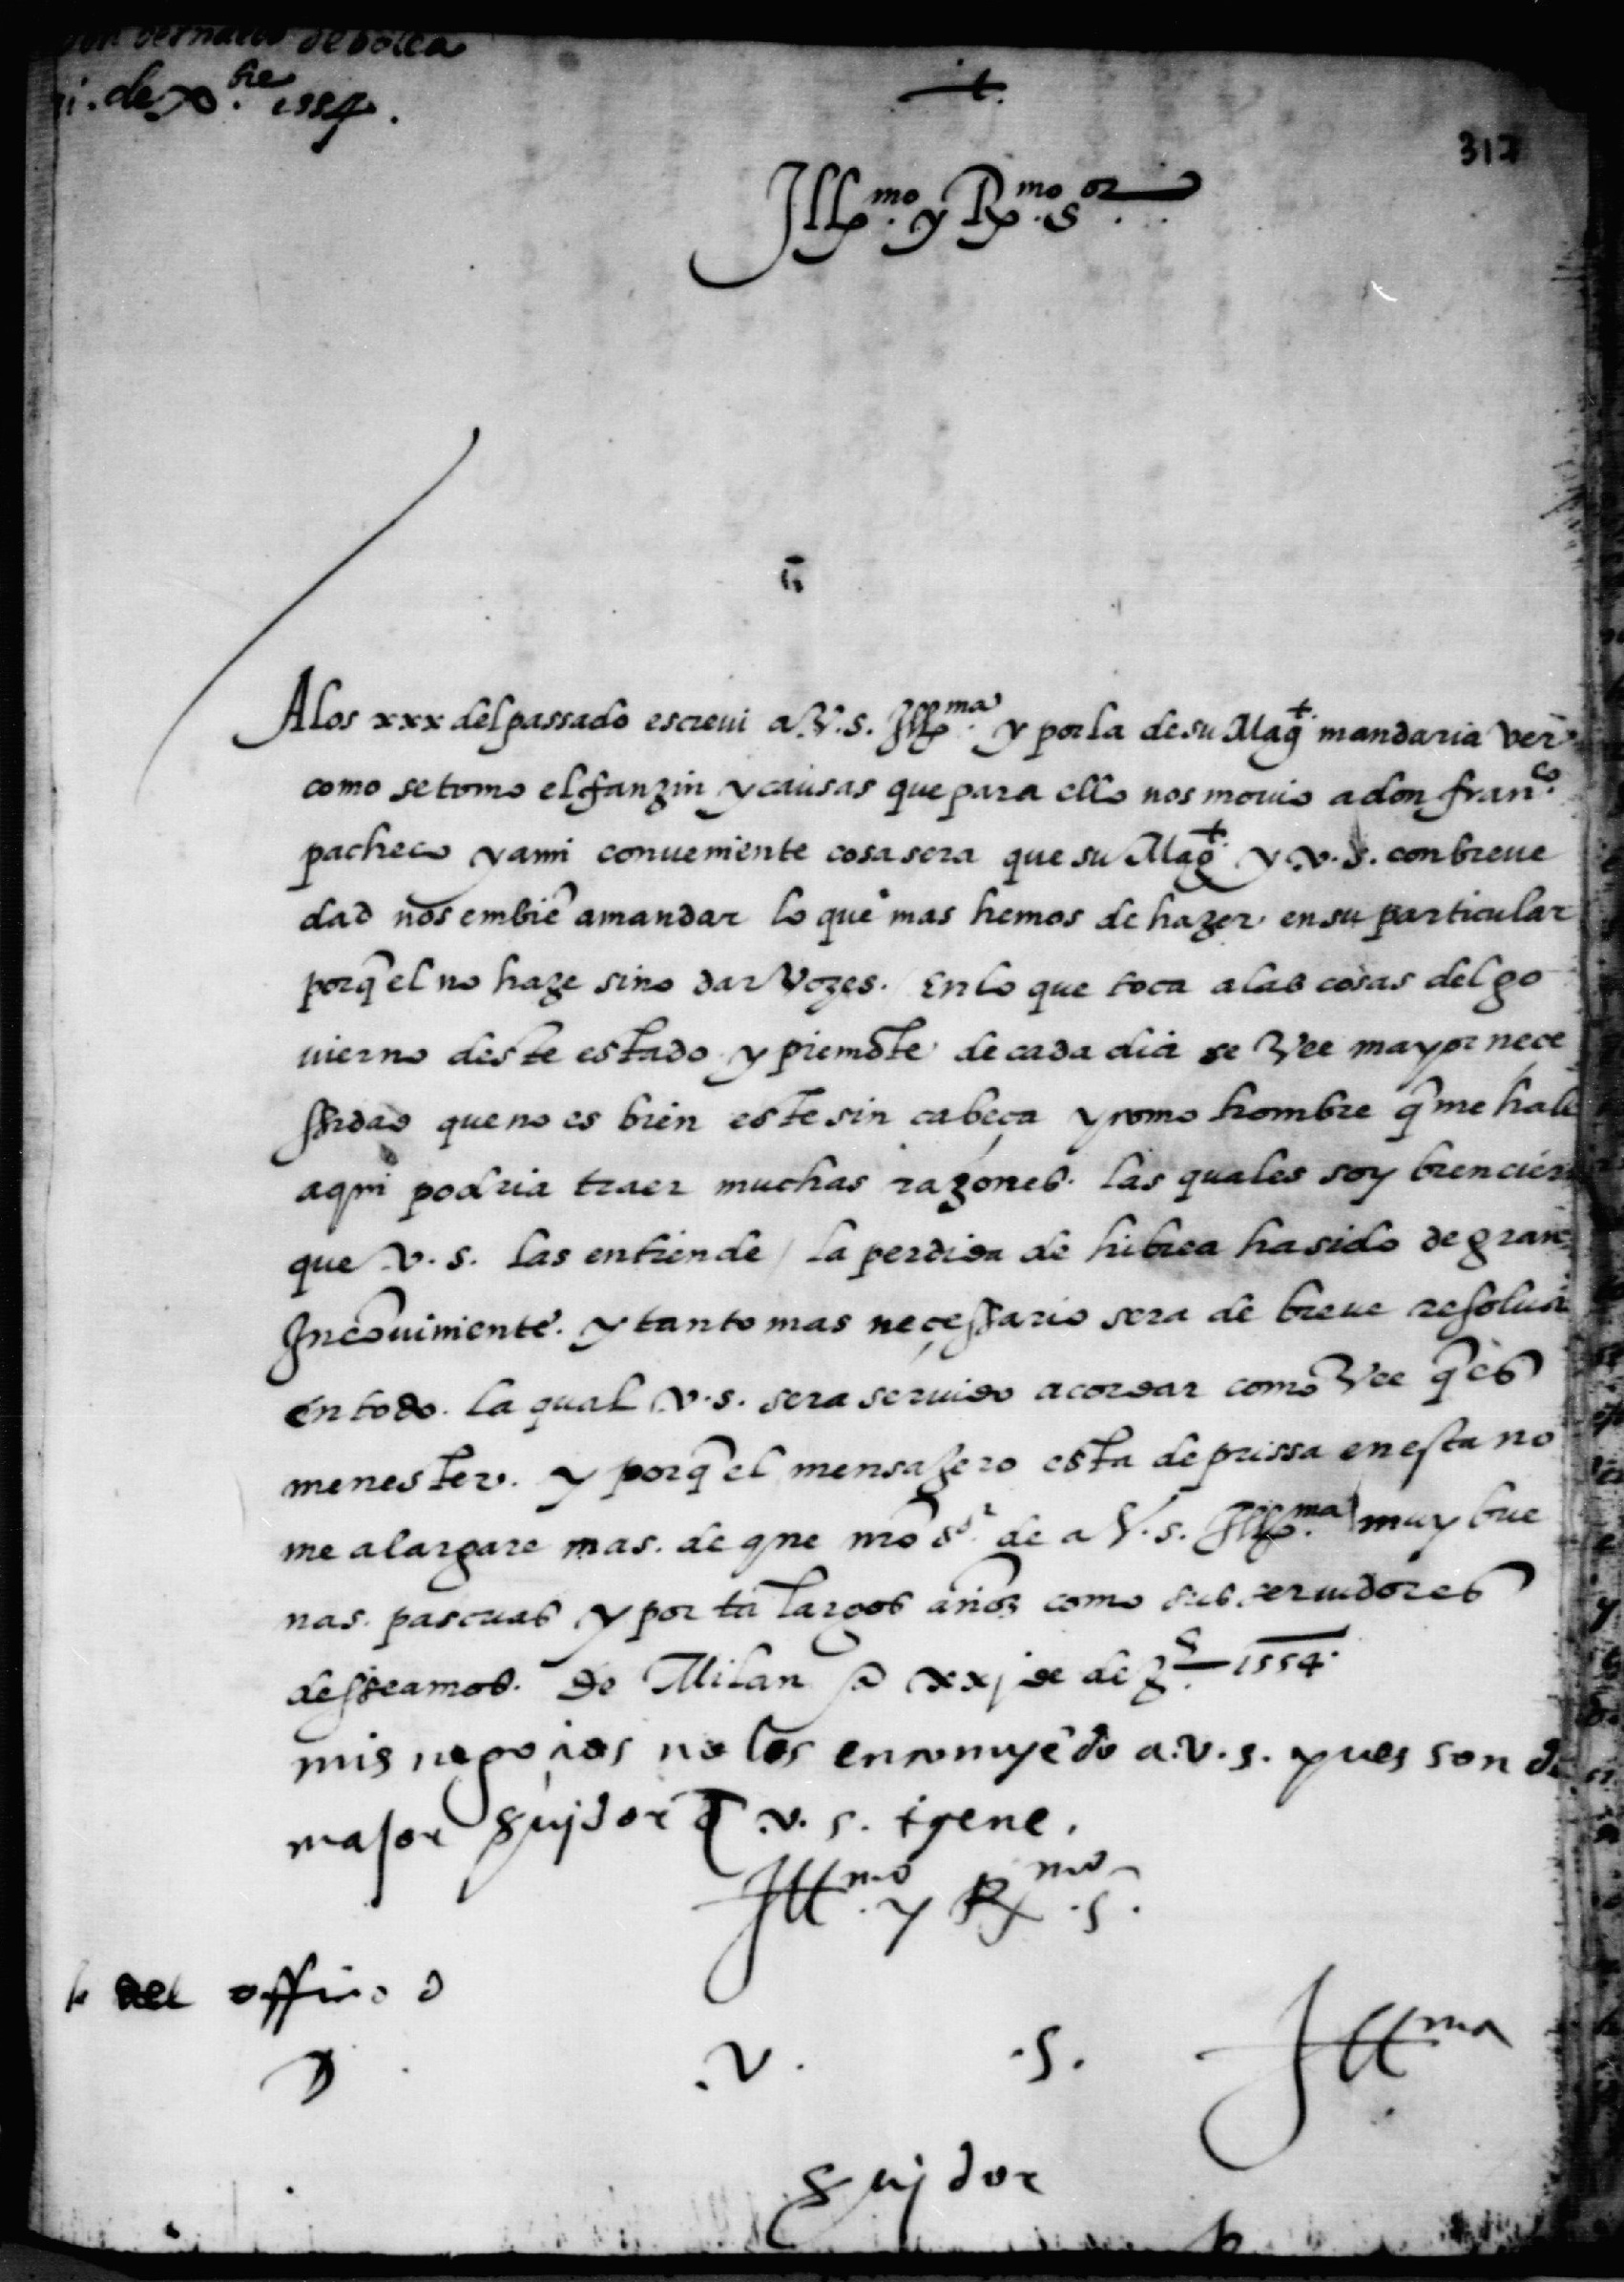 bernardo de bolea
de xbre 1554.
317
Illmo. y Rmo. sor.
A los xxx del passado escreui a V.S. Illma. y por la de su Magt. mandaria ver
como se tomo el fanzin y causas que para ello nos mouio a don franco.
pacheco y a mi conueniente cosa sera que su Magt. y v.s. con breue
dad nos embiē a mandar lo que mas hemos de hazer en su particular
porq̄ el no haze sino dar vozes. En lo que toca a las cosas del go
uierno deste estado y piemōte de cada dia se vee mayor nece
ssidad que no es bien este sin cabeça y como hombre q̄ me hallo
aqui podria traer muchas razones. las quales soy bien cierto
que v.s. las entiende / la perdida de hibrea ha sido de gran
Incōuiniente. y tanto mas neçessario sera de breue resoluciō
en todo. la qual v.s. sera seruido acordar como vee q̄ es
menester. y porq̄ el mensagero esta de prissa en esta no
me alargare mas. de que nro sor. de a V.S. Illma. muy bue
nas pascuas y por tā largos años como sus seruidores
desseamos. De Milan a xxj de dezᵉ. 1554.
mis negocios no los encomyēdo a v.s. pues son del
major sujdor q̄ v.s. tyene.
Illmo. y Rmo. s.
del officio d
D. v. s. Illma
sujdor